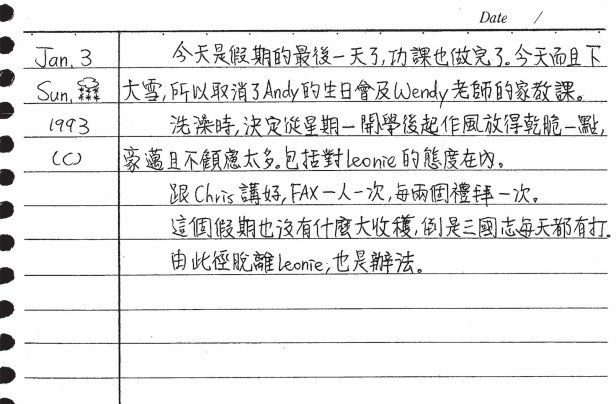 Date /
Jan. 3 今天是假期的最後一天了,功課也做完了。今天而且下
Sun. 大雪,所以取消了Andy的生日會及Wendy老師的家教課。
1993 洗澡時,決定從星期一開學後起作風放得乾脆一點,
(C) 豪邁且不顧慮太多。包括對leonie的態度在內。
跟Chris講好,FAX一人一次,每兩個禮拜一次。
這個假期也沒有什麼大收穫,倒是三國志每天都有打。
由此徑脫離leonie,也是辦法。